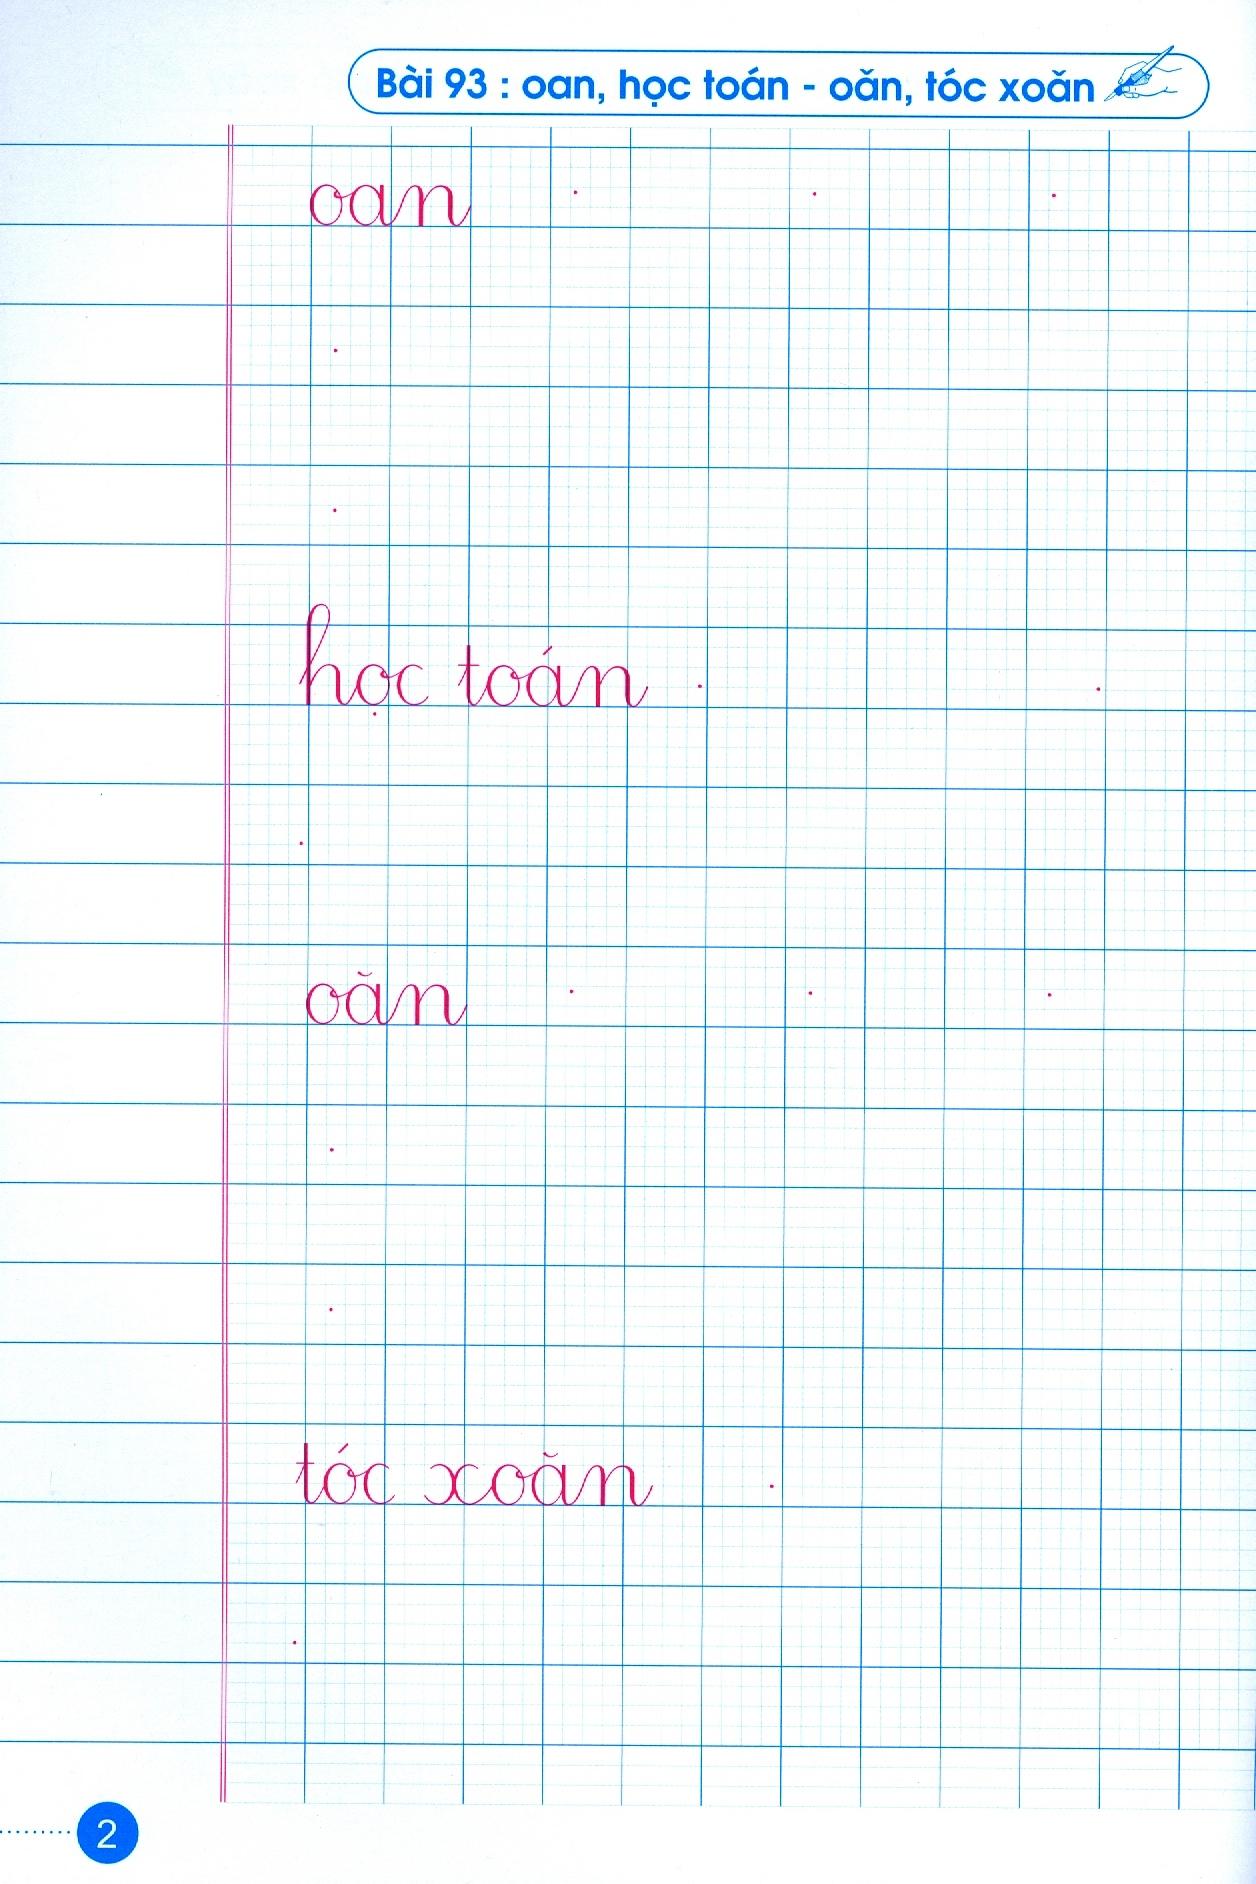 Bài 93 : oan, học toán - oăn, tóc xoăn
oan
học toán
oăn
tóc xoăn
2